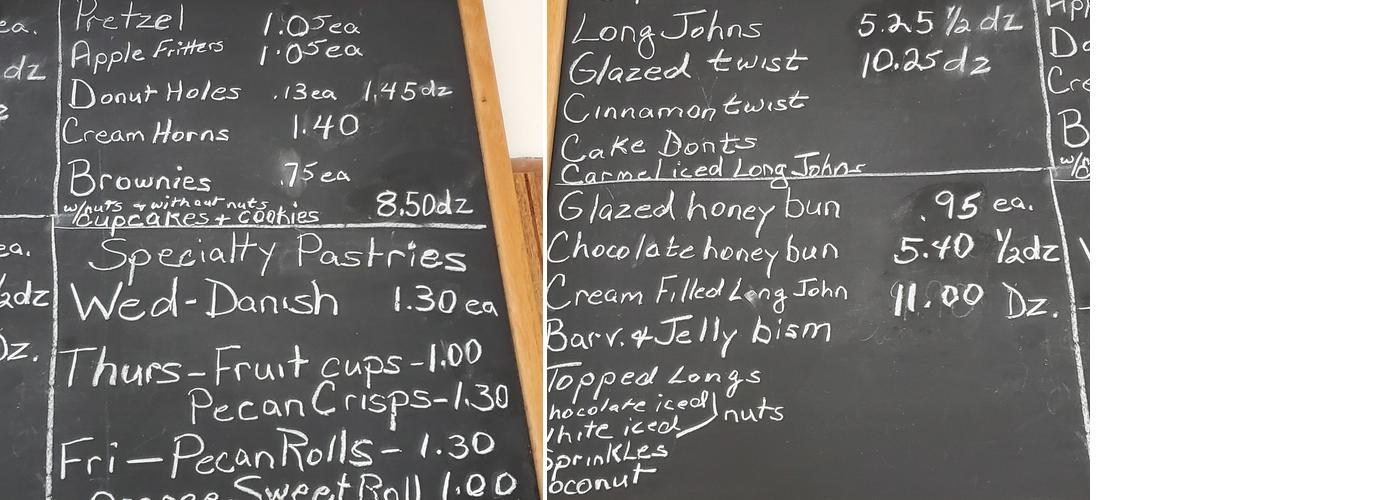 ea.
dz
Pretzel 1.05ea
Apple Fritters 1.05ea
Donut Holes .13ea 1.45dz
Cream Horns 1.40
Brownies .75ea
w/nuts & without nuts
Cupcakes + Cookies 8.50dz
Specialty Pastries
ea.
½dz
Dz.
Wed-Danish 1.30 ea
Thurs-Fruit cups-1.00
Pecan Crisps-1.30
Fri-Pecan Rolls-1.30
Sweet Roll 1.00
Long Johns 5.25 ½dz
Glazed twist 10.25dz
Cinnamon twist
Cake Donts
Carmel iced Long Johns
Glazed honey bun .95 ea.
Chocolate honey bun 5.40 ½dz
Cream Filled Long John 11.00 Dz.
Barv. & Jelly bism
Topped Longs
hocolate iced nuts
hite iced
prinkles
oconut